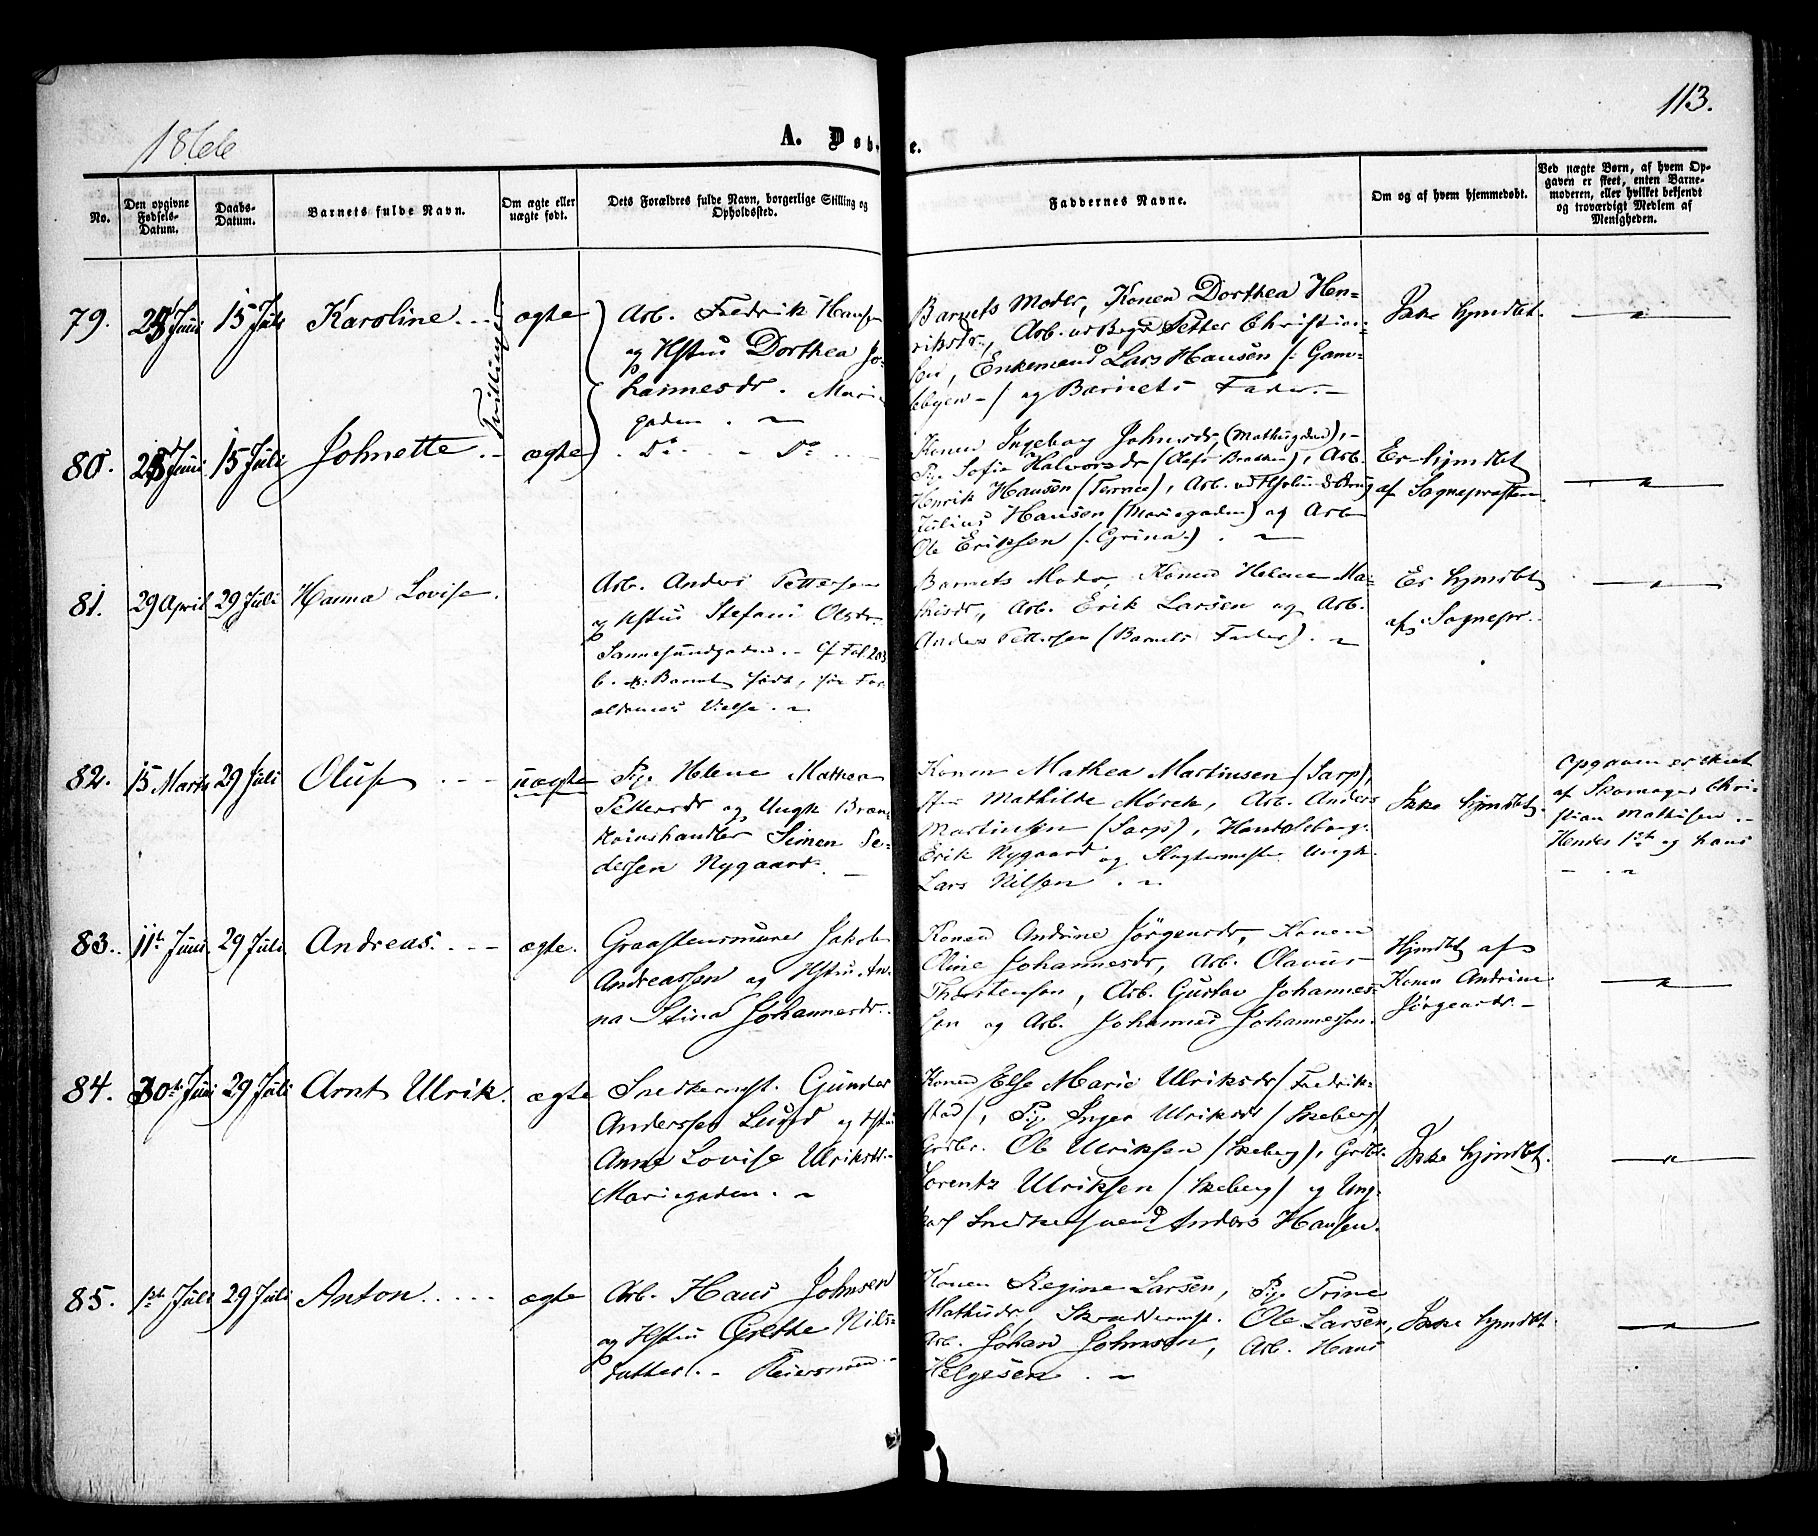 113.
1866
A. Døb e.
No.
Den opgivne Fødsels-Datum.
Daabs-Datum.
Barnets fulde Navn.
Om ægte eller uægte født.
Dets Forældres fulde Navn, borgerlige Stilling og Opholdssted.
Faddernes Navne.
Om og af hvem hjemmedøbt.
Ved uægte Børn, af hvem Opgaven er skeet, enten Barnemoderen, eller hvilket bekjendt og troværdigt Medlem af Menigheden.
79. Juni 15 Juli Karoline ægte
Tvillinger
Arb. Fredrik Hansen
og Hstru Dorthea Jo-
hannesdr. Marie
gaden.
Barnets Moder, Konen Dorthea Hen-
riksdr, Arb. vd Bega Petter Christian-
sen, Enkemand Lars Hansen (: Gam-
lebyen -/ og Barnets Fader. -
Ikke hjmdbt.
80. Juni 15 Juli Johnette ægte
Do Do
Konen Ingeborg Johnsdr, (Mathisgaden), -
Pig. Sofie Halvorsdr (Olafs Brakken), Arb.
Henrik Hansen (Terner), Arb. vd Hfslund Brug
Julius Hansen (Mariegaden) og Arb
Ole Eriksen (: Grina.) .
Er hjmdbt
af Sognepræsten
81. 29 April 29 Juli Hanna Lovise.
Arb. Anders Pettersen
og Hstru Stefani Olsdr
Sannesundgaden. - Cf Fol 203
b. Barnet født, før For-
ældrenes Vielse.
Barnets Moder, Konen Helene Ma-
thisdr, Arb. Erik Larsen og Arb.
Anders Pettersen (Barnets Fader).
Er hjmdbt
af Sognepr.
82. 15 Marts 29 Juli Oluf uægte
Pig. Helene Mathea
Pettersdr og Ungk Bræn-
deviinshandler Simen Pe-
dersen Nygaard.
Konen Mathea Martinsen (Sarp),
Mathilde Mørck, Arb. Anders
Martinsen (Sarp), Handelsborg.
Erik Nygaard og Slagtermester Ungk.
Lars Nilsen.
Ikke hjmdbt.
Opgaven er skeet
af Skomager Chri-
stian Mathisen. -
Hendes 1ste og hans
83. 11te Juni 29 Juli Andreas. ægte.
Graastensmurer Jakob
Andreassen og Hstru An-
na Stina Johannesdr.
Konen Andrine Jørgensdr, Konen
Oline Johannesdr, Arb. Olavus
Thorstensen, Arb. Gustav Johannes-
sen og Arb. Johannes Johannessen.
Hjmdbt af
Konen Andrine
Jørgensdr. -
84. 30te Juni 29 Juli Arnt Ulrik. ægte
Snedkermst. Gunder
Anderssen Lund og Hstru
Anne Lovise Ulriksdr
Mariegaden.
Konen Else Marie Ulriksdr (Fredrik-
stad), Pig. Inger Ulriksdr (Skeberg),
Grdbr. Ole Ulriksen (Skeberg), Grdbr.
Lorentz Ulriksen (Skeberg) og Ung-
karl Snedkersvend Anders Hansen.
Ikke hjmdbt.
85. 1ste Juli 29 Juli Anton. ægte
Arb. Hans Johnsen
og Hstru Grethe Nils-
datter. - Reiersmoen -
Konen Regine Larsen, Pig. Trine
Mathisdr, Skræddermst. Ole Larsen,
Arb. Johan Johnsen, Arb. Hans
Helgesen.
Ikke hjmdbt.